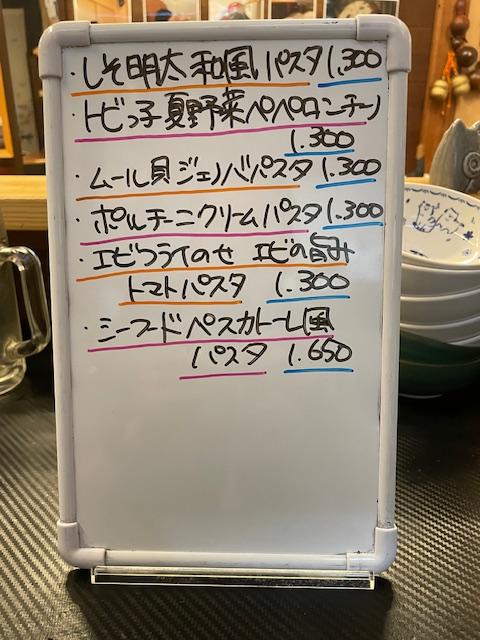 ・しそ明太和風パスタ 1.300
トビっ子夏野菜ペペロンチーノ
1.300
・ムール貝ジェノバパスタ 1.300
・ポルチーニクリームパスタ 1.300
・エビフライのせ エビの旨み
トマトパスタ 1.300
・シーフードペスカトーレ風
パスタ 1.650